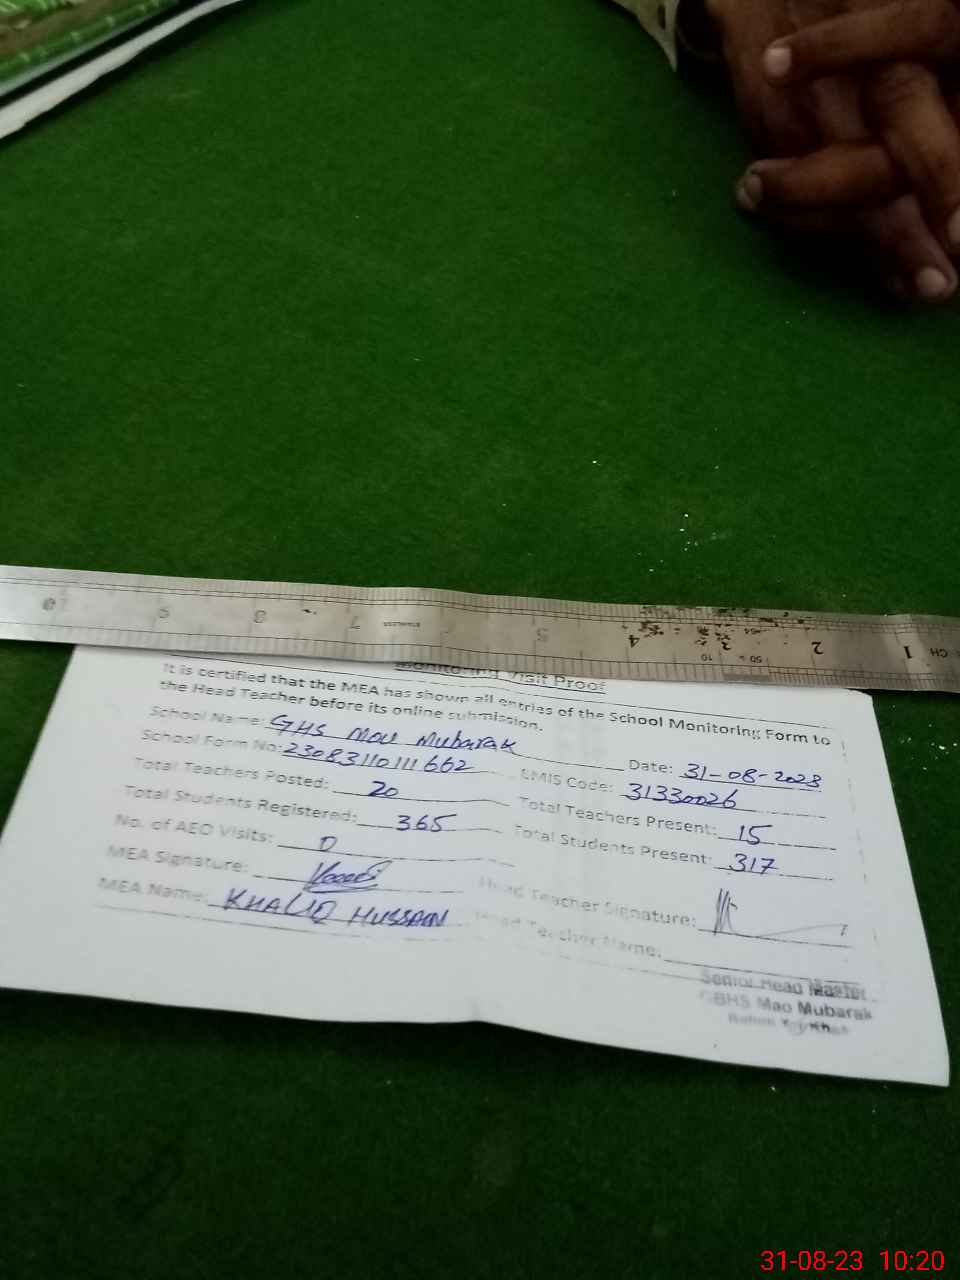 Monitoring Visit Proof
It is certified that the MEA has shown all entries of the School Monitoring Form to
the Head Teacher before its online submission.
School Name: GHS Mou Mubarak Date: 31-08-2023
School Form No: 23083110111662 EMIS Code: 31330026
Total Teachers Posted: 20 Total Teachers Present: 15
Total Students Registered: 365 Total Students Present: 317
No. of AEO Visits: 0
MEA Signature: Head Teacher Signature:
MEA Name: KHALIQ HUSSAIN Head Teacher Name:
Senior Head Master
GBHS Mao Mubarak
STAINLESS
10 9 8 7 5 4 3 2 1
31-08-23 10:20